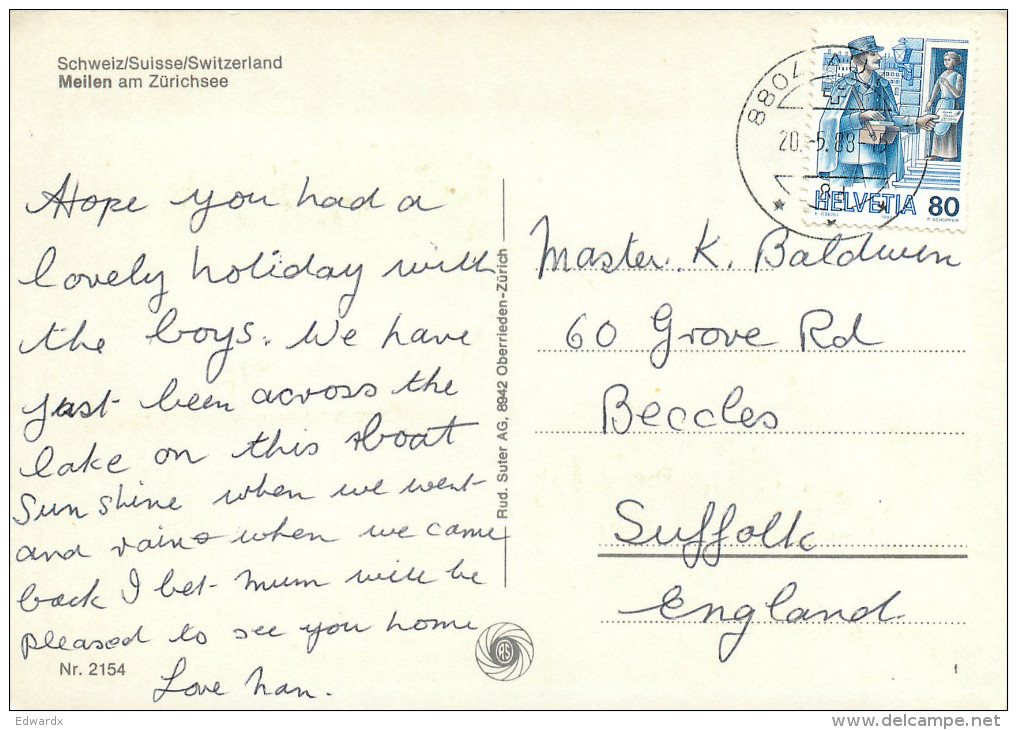 Schweiz/Suisse/Switzerland
Meilen am Zürichsee
Hope you had a
lovely holiday with
the boys. We have
just been across the
lake on this boat
Sunshine when we went
and rain when we came
back I bet Mum will be
pleased to see you home
Love Nan.
Nr. 2154
Rud. Suter AG, 8942 Oberrieden-Zürich
8804
20.-5.88
HELVETIA 80
Master. K. Baldwin
60 Grove Rd
Beccles
Suffolk
England.
RS
f
Edwardx
www.delcampe.net